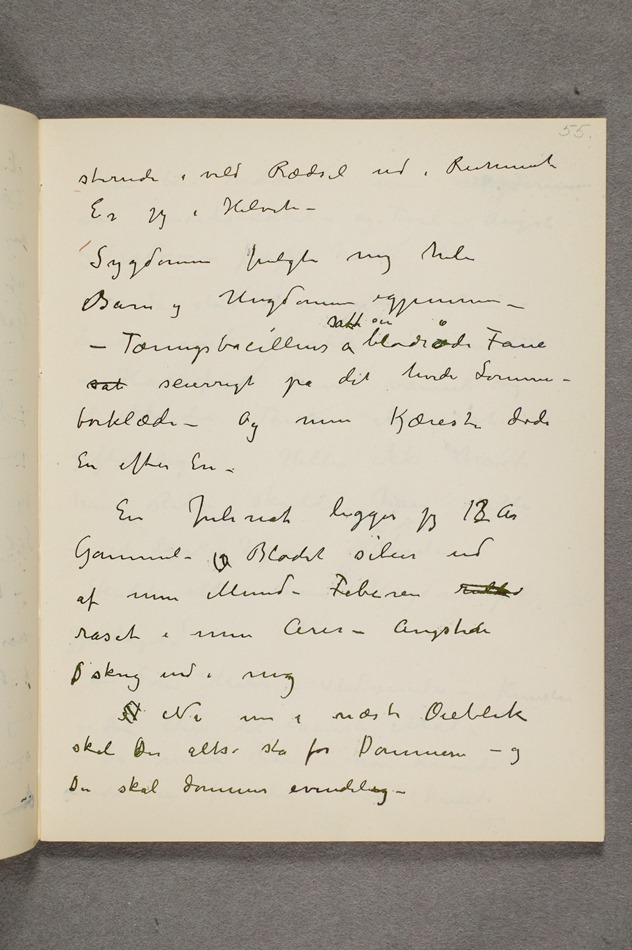 55.
stirrende i vild Rædsel ud i Rummet
Er jeg i Helvede –
Sygdommen fulgte mig hele
Barn og Ungdommen igjennem –
satt sin
– Tæringsbacillens blodrøde Fane
sat seierrigt på det hvide Lomme-
tørklæde – Og mine Kjæreste døde
En efter En –
En Julenat ligger jeg 13 År
Gammel – Blodet siler ud
af min Mund – Feberen
raset i mine Årer – Angsten
skreg ind i mig
Nu nu i næste Øieblik
skal Du altså stå for Dommeren – og
Du skal dømmes evindelig –